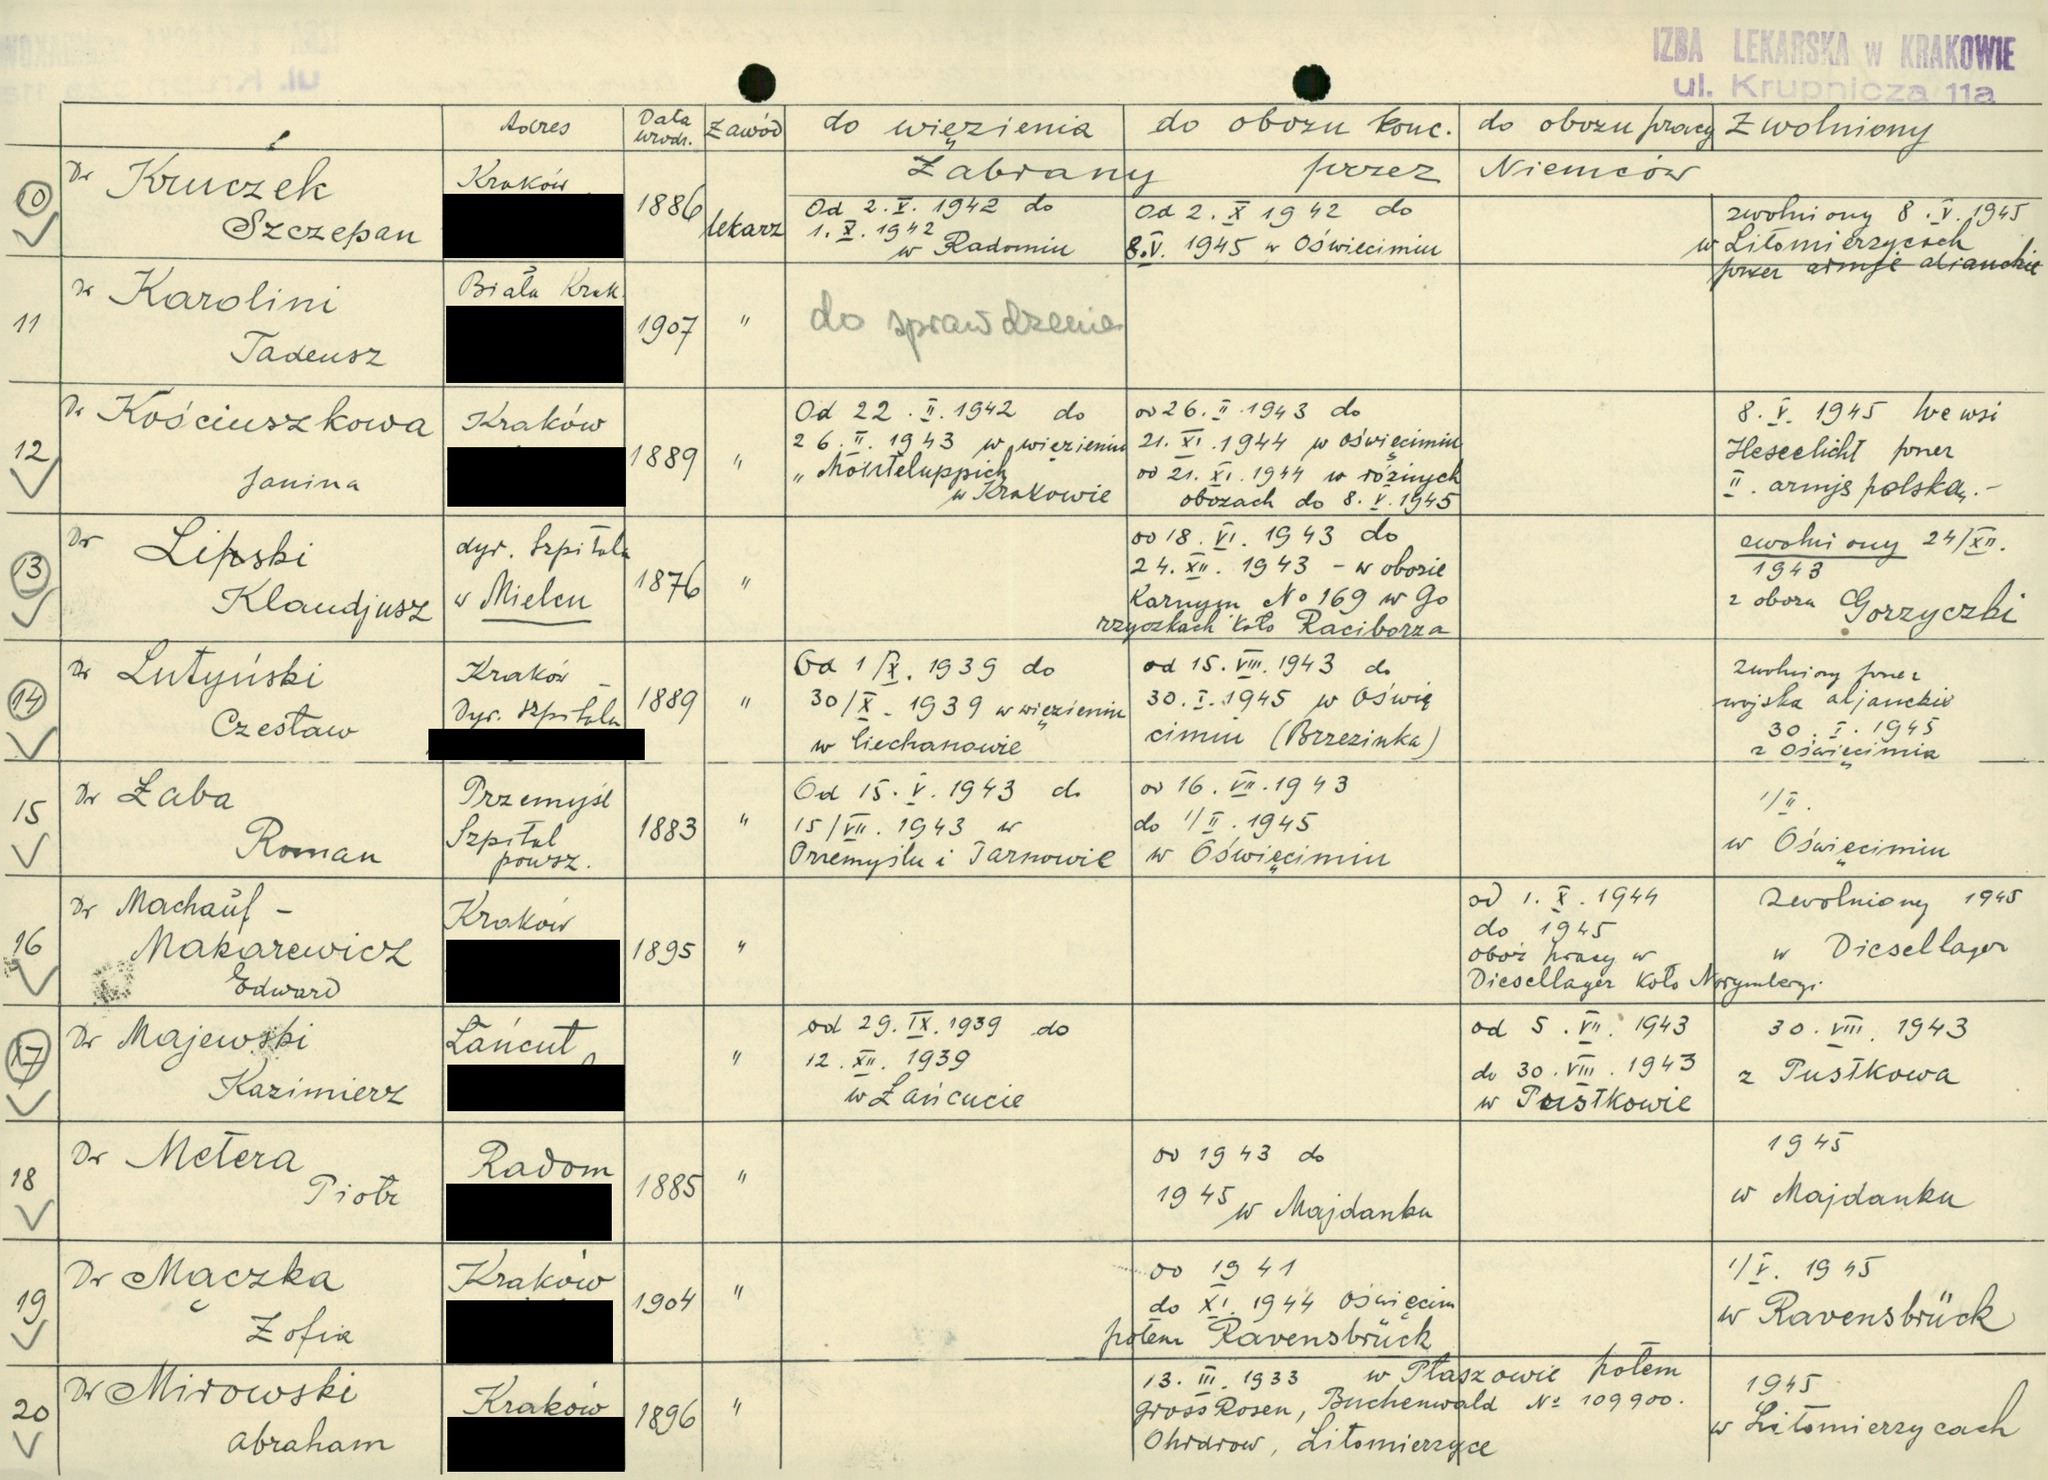 IZBA LEKARSKA w KRAKOWIE
ul. Krupnicza 11a
Adres
Data urodz.
Zawód
do więzienia
do obozu konc.
do obozu pracy
Zwolniony
Zabrany przez Niemców
10
Dr Kruczek
Szczepan
Kraków
1886
lekarz
Od 2.V.1942 do
1.X.1942
w Radomiu
Od 2.X 1942 do
8.V. 1945 w Oświęcimiu
zwolniony 8.V.1945
w Litomierzycach
przez armje aljanckie
11
Dr Karolini
Tadeusz
Biała Krak.
1907
"
do sprawdzenia
12
Dr Kościuszkowa
Janina
Kraków
1889
"
Od 22.II.1942 do
26.II.1943 w więzieniu
"Monteluppich
w Krakowie
od 26.II.1943 do
21.XI.1944 w Oświęcimiu
od 21.XI.1944 w różnych
obozach do 8.V.1945
8.V.1945 we wsi
przez
II. armję polską.-
13
Dr Lipski
Klaudjusz
dyr. Szpitala
w Mielcu
1876
"
od 18.VI.1943 do
24.XII.1943 - w obozie
Karnym No 169 w Go
rzyczkach koło Raciborza
zwolniony 24/XII.
1943
z obozu Gorzyczki
14
Dr Lutyński
Czesław
Kraków -
Dyr. Szpitala
1889
"
Od 1/X.1939 do
30/X.1939 w więzieniu
w Ciechanowie
od 15.VIII.1943 do
30.I.1945 w Oświę
cimiu (Brzezinka)
zwolniony przez
wojska aljanckie
30.I.1945
z Oświęcimia
15
Dr Łaba
Roman
Przemyśl
Szpital
powsz.
1883
"
Od 15.V.1943 do
15/VII.1943 w
Przemyślu i Tarnowie
od 16.VII.1943
do 1/II.1945
w Oświęcimiu
1/II.
w Oświęcimiu
16
Dr Machauf -
Makarewicz
Edward
Kraków
1895
"
od 1.X.1944
do 1945
obóz pracy w
Diesellager koło Norymbergi.
Zwolniony 1945
w Diesellager
17
Dr Majewski
Kazimierz
Łańcut
"
od 29.IX.1939 do
12.XII.1939
w Łańcucie
od 5.VII.1943
do 30.VIII.1943
w Pustkowie
30.VIII.1943
z Pustkowa
18
Dr Metera
Piotr
Radom
1885
"
od 1943 do
1945 w Majdanku
1945
w Majdanku
19
Dr Mączka
Zofia
Kraków
1904
"
od 1941
do XI.1944 Oświęcim
potem Ravensbrück
1/V.1945
w Ravensbrück
20
Dr Mirowski
Abraham
Kraków
1896
"
13.III.1933 w Płaszowie potem
Gross Rosen, Buchenwald No 109900.
Ohrdrow, Litomierzyce
1945
w Litomierzycach